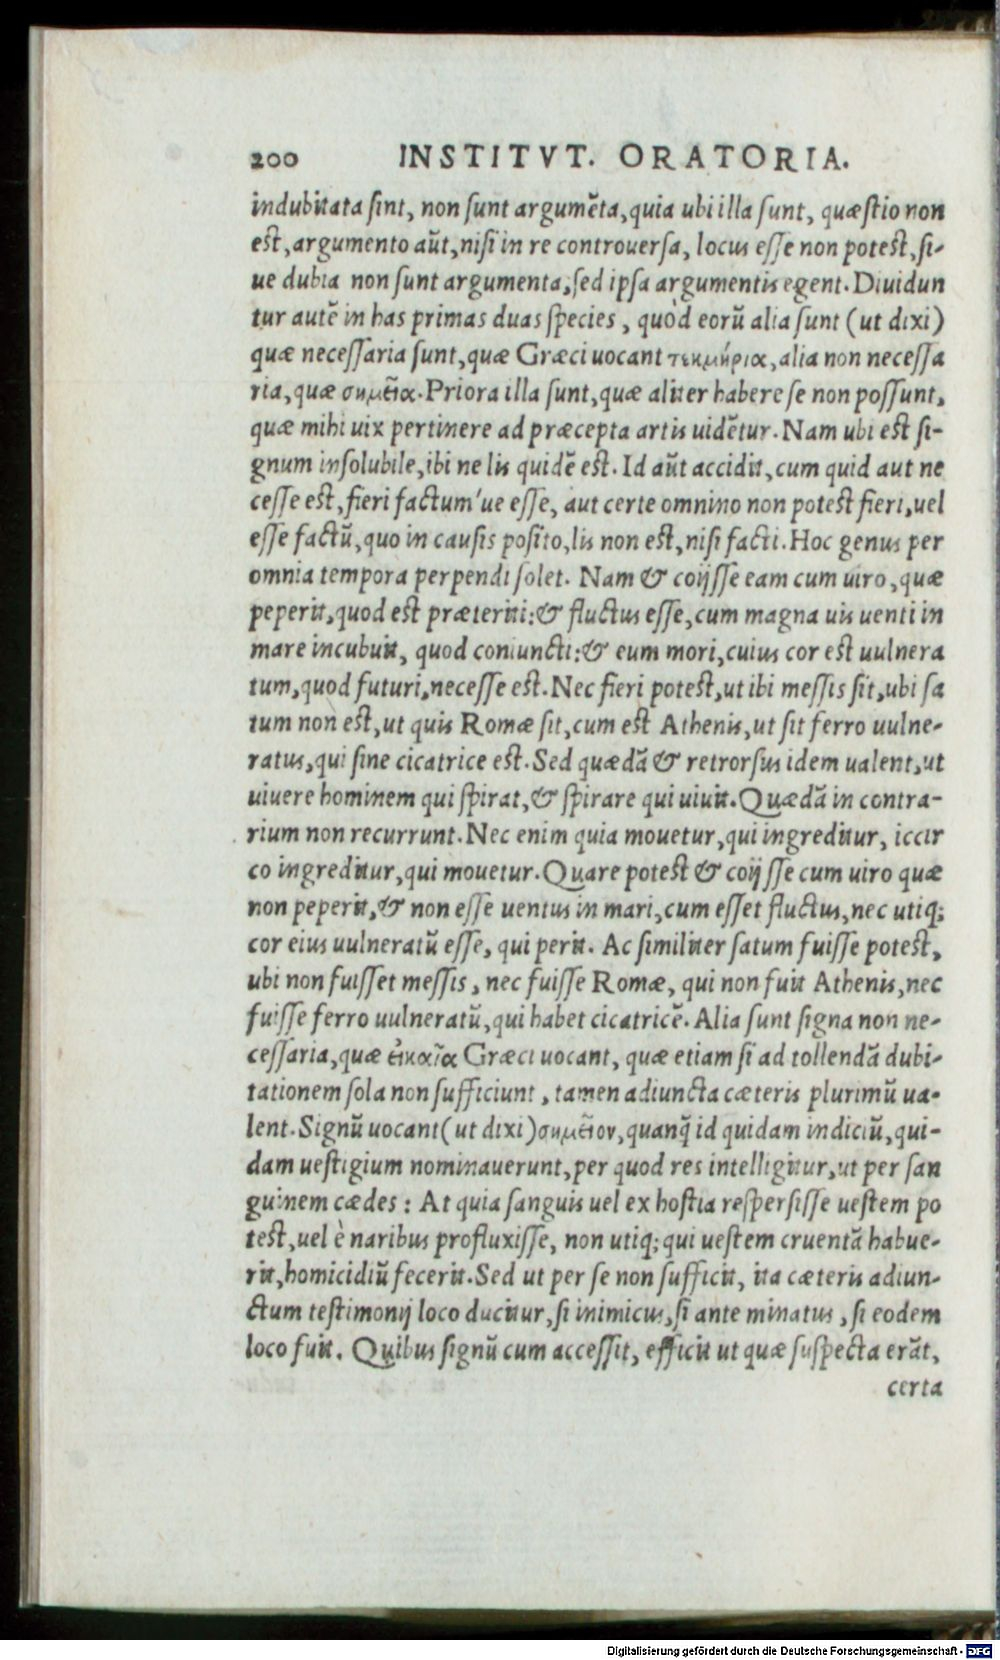 200 INSTITVT. ORATORIA.
indubitata sint, non sunt argumẽta, quia ubi illa sunt, quæstio non
est, argumento aũt, nisi in re controuersa, locus esse non potest, si-
ue dubia non sunt argumenta, sed ipsa argumentis egent. Diuidun
tur autẽ in has primas duas species, quod eorũ alia sunt (ut dixi)
quæ necessaria sunt, quæ Græci uocant τεκμήρια, alia non necessa
ria, quæ σημεῖα. Priora illa sunt, quæ aliter habere se non possunt,
quæ mihi uix pertinere ad præcepta artis uidẽtur. Nam ubi est si-
gnum insolubile, ibi ne lis quidẽ est. Id aũt accidit, cum quid aut ne
cesse est, fieri factum'ue esse, aut certe omnino non potest fieri, uel
esse factũ, quo in causis posito, lis non est, nisi facti. Hoc genus per
omnia tempora perpendi solet. Nam & coijsse eam cum uiro, quæ
peperit, quod est præteriti: & fluctus esse, cum magna uis uenti in
mare incubuit, quod coniuncti: & eum mori, cuius cor est uulnera
tum, quod futuri, necesse est. Nec fieri potest, ut ibi messis sit, ubi sa
tum non est, ut quis Romæ sit, cum est Athenis, ut sit ferro uulne-
ratus, qui sine cicatrice est. Sed quædã & retrorsus idem ualent, ut
uiuere hominem qui spirat, & spirare qui uiuit. Quædã in contra-
rium non recurrunt. Nec enim quia mouetur, qui ingreditur, iccir
co ingreditur, qui mouetur. Quare potest & coijsse cum uiro quæ
non peperit, & non esse uentus in mari, cum esset fluctus, nec utiq;
cor eius uulneratũ esse, qui perit. Ac similiter satum fuisse potest,
ubi non fuisset messis, nec fuisse Romæ, qui non fuit Athenis, nec
fuisse ferro uulneratũ, qui habet cicatricẽ. Alia sunt signa non ne-
cessaria, quæ εἰκαῖα Græci uocant, quæ etiam si ad tollendã dubi-
tationem sola non sufficiunt, tamen adiuncta cæteris plurimũ ua-
lent. Signũ uocant (ut dixi) σημεῖον, quanq̃ id quidam indiciũ, qui-
dam uestigium nominauerunt, per quod res intelligitur, ut per san
guinem cædes: At quia sanguis uel ex hostia respersisse uestem po
test, uel è naribus profluxisse, non utiq; qui uestem cruentã habue-
rit, homicidiũ fecerit. Sed ut per se non sufficit, ita cæteris adiun-
ctum testimonij loco ducitur, si inimicus, si ante minatus, si eodem
loco fuit. Quibus signũ cum accessit, efficit ut quæ suspecta erãt,
certa
Digitalisierung gefördert durch die Deutsche Forschungsgemeinschaft - DFG